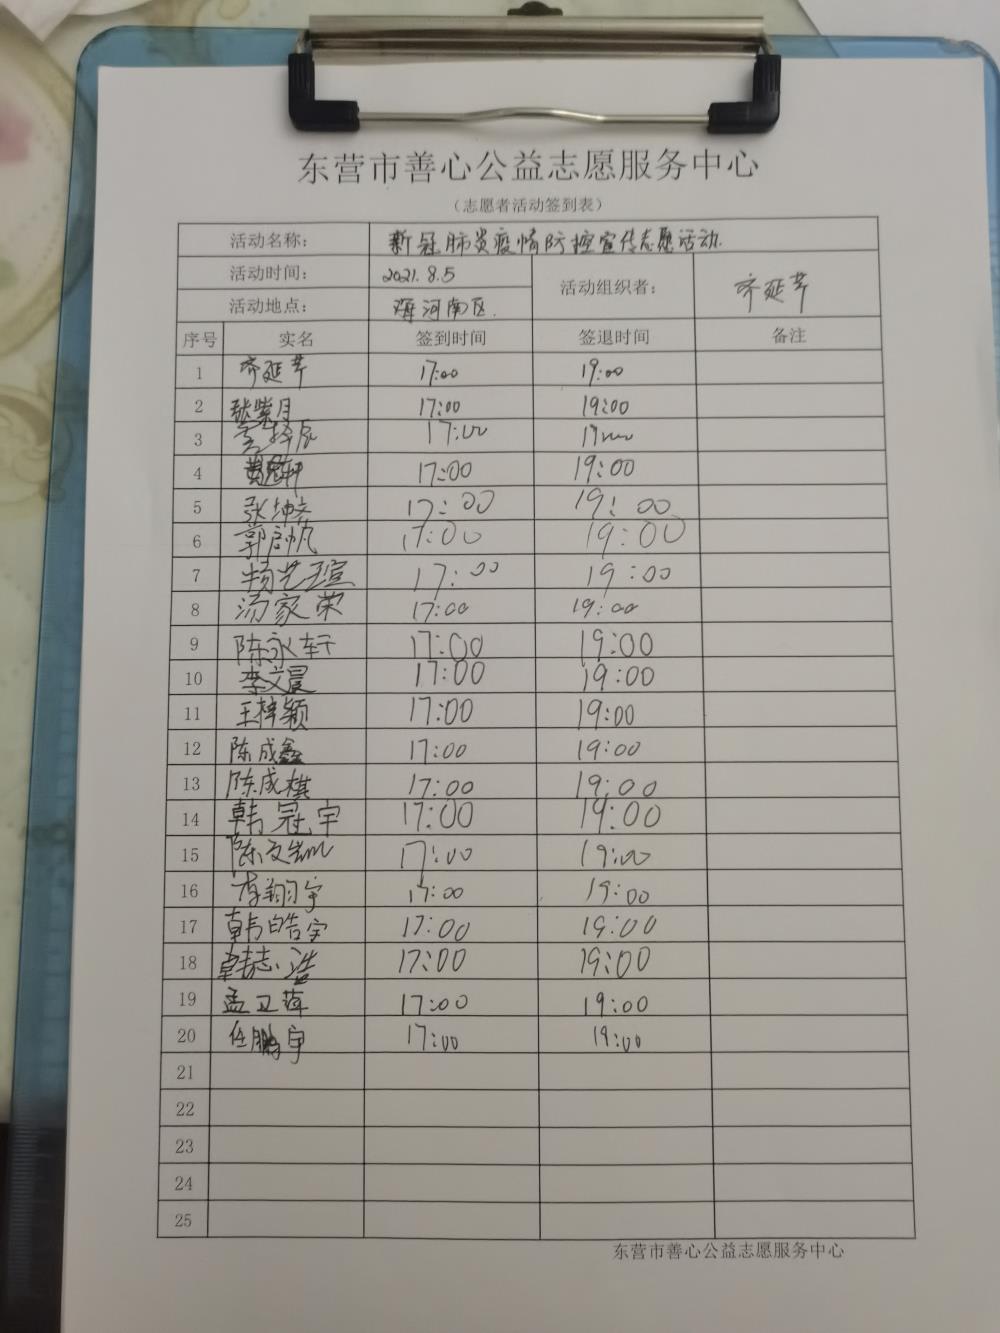 东营市善心公益志愿服务中心
（志愿者活动签到表）
活动名称： 新冠肺炎疫情防控宣传志愿活动
活动时间： 2021.8.5 活动组织者： 齐延芹
活动地点： 海河南区.
序号 实名 签到时间 签退时间 备注
1 齐延芹 17:00 19:00
2 张紫月 17:00 19:00
3 17:00 19:00
4 17:00 19:00
5 张坤 17:00 19:00
6 郭启帆 17:00 19:00
7 杨艺瑄 17:00 19:00
8 汤家荣 17:00 19:00
9 陈永轩 17:00 19:00
10 李文晨 17:00 19:00
11 王梓颖 17:00 19:00
12 陈成鑫 17:00 19:00
13 陈成棋 17:00 19:00
14 韩冠宇 17:00 19:00
15 陈文凯 17:00 19:00
16 李翔宇 17:00 19:00
17 韩皓宇 17:00 19:00
18 韩志浩 17:00 19:00
19 孟卫萍 17:00 19:00
20 任鹏宇 17:00 19:00
21
22
23
24
25
东营市善心公益志愿服务中心